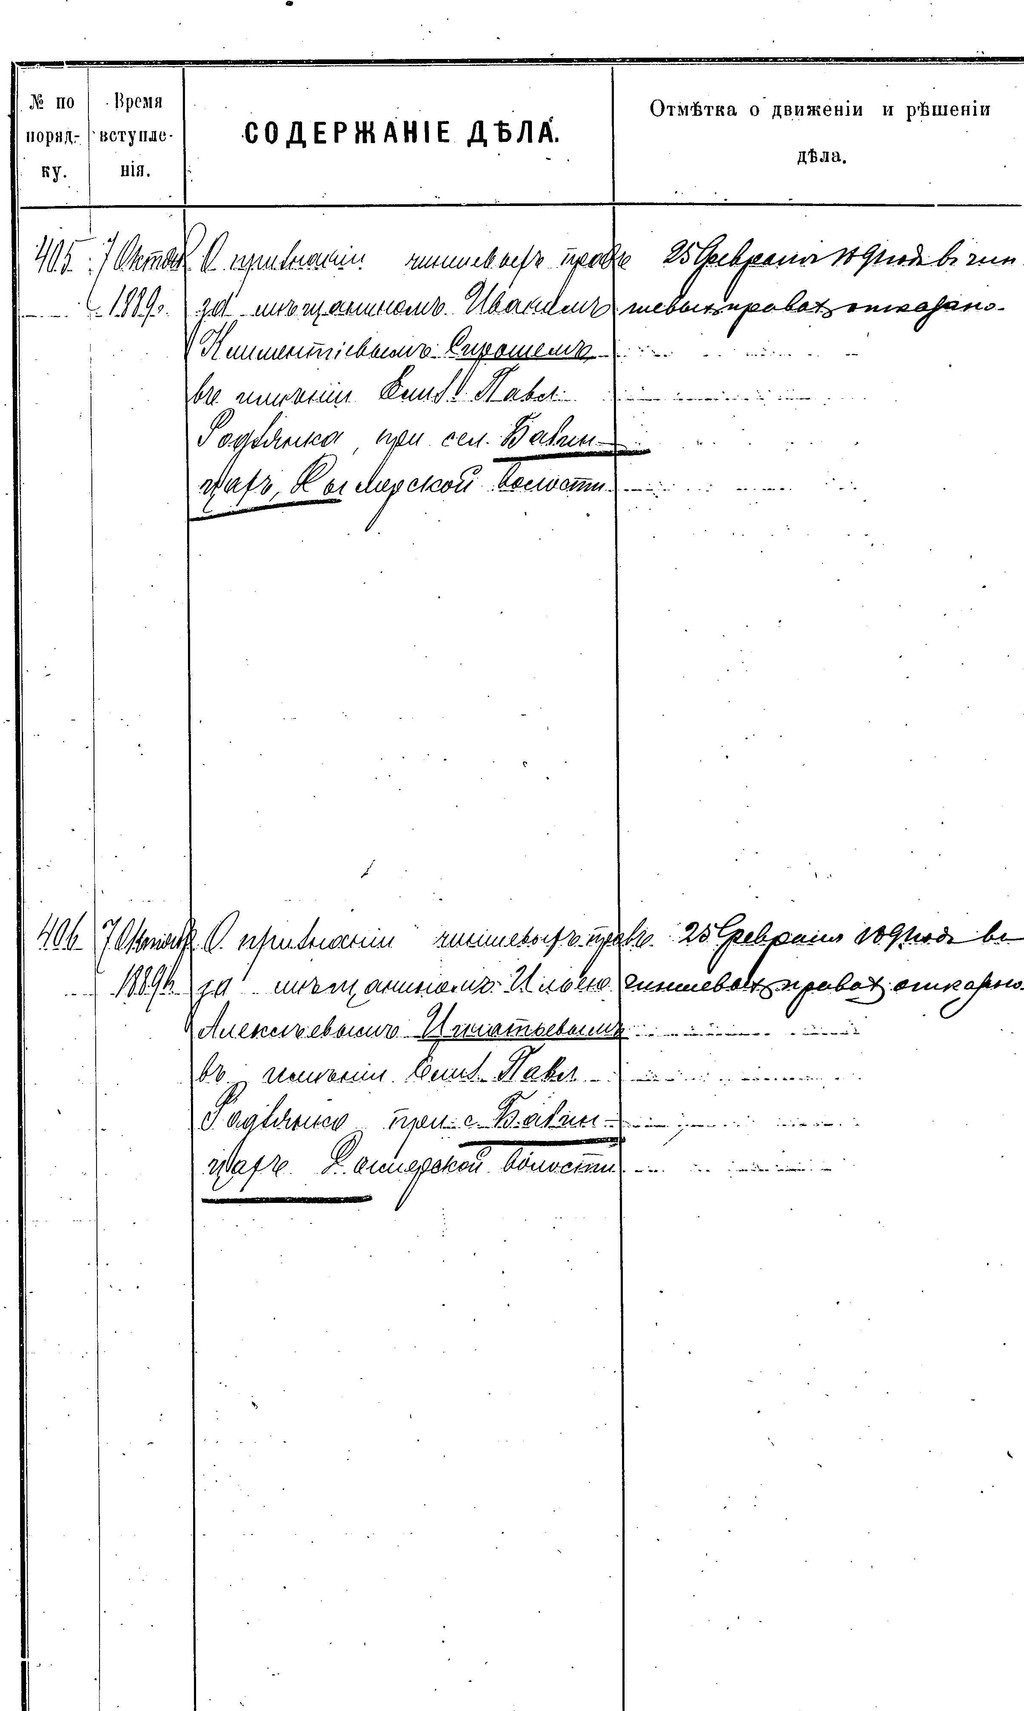 № по поряд- ку.
Время вступле- нія.
СОДЕРЖАНІЕ ДѢЛА.
Отмѣтка о движеніи и рѣшеніи
дѣла.
405
7 Октяб
1889г.
О признаніи чиншевыхъ правъ
за мѣщаниномъ Иваномъ
Климентіевымъ
въ имѣніи Елиз. Павл.
Родзянко, при сел. Бавин-
цахъ, волости
25 Февраля года въ чин-
шевыхъ правах отказано.
406
7 Октяб
1889г.
О признаніи чиншевыхъ правъ
за мѣщаниномъ Ильею
Алексѣевымъ Игнатьевымъ
въ имѣніи Елиз. Павл.
Родзянко при с. Бавин-
цахъ волости
25 Февраля года въ
чиншевых правах отказано.